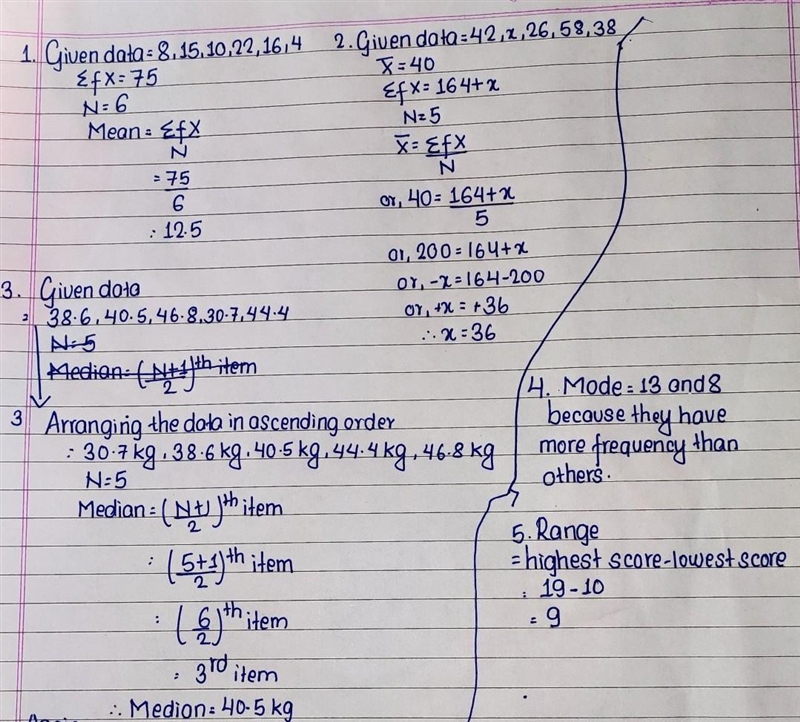 1. Given data = 8, 15, 10, 22, 16, 4
Σfx = 75
N = 6
Mean = Σfx
N
= 75
6
∴ 12.5
2. Given data = 42, x, 26, 58, 38
x̄ = 40
Σfx = 164+x
N = 5
x̄ = Σfx
N
or, 40 = 164+x
5
or, 200 = 164+x
or, -x = 164-200
or, +x = +36
∴ x = 36
3. Given data
= 38.6, 40.5, 46.8, 30.7, 44.4
N = 5
Median = (N+1/2)th item
3 Arranging the data in ascending order
: 30.7 kg, 38.6 kg, 40.5 kg, 44.4 kg, 46.8 kg
N = 5
Median = (N+1/2)th item
: (5+1/2)th item
: (6/2)th item
= 3rd item
∴ Median = 40.5 kg
4. Mode = 13 and 8
because they have
more frequency than
others.
5. Range
= highest score - lowest score
: 19 - 10
= 9